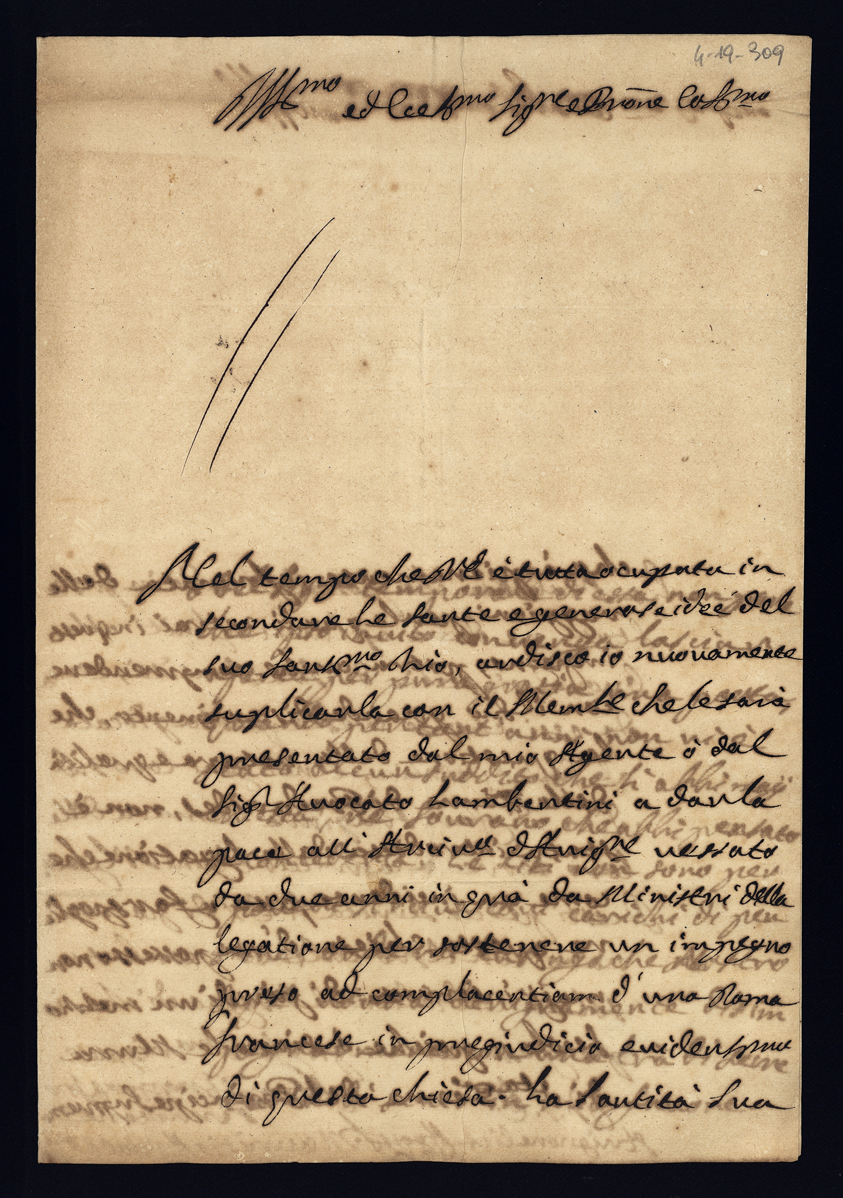 4-19-309
Ill.mo ed Ecc.mo Sig.re e Prone Col.mo
Nel tempo che V.E. è tutta ocupata in
secondare le sante e generose idee del
suo Sant.mo Zio, ardisco io nuovamente
suplicarla con il Mem.le che le sarà
presentato dal mio Agente ò dal
Sig.r Avocato Lambertini a dar la
pace all' Arciv.o d'Avig.ne vessato
da due anni in quà da Ministri della
legatione per sostenere un impegno
preso ad complacentiam d'una Dama
francese in pregiudicio evident.mo
di questa chiesa. ha Santità Sua